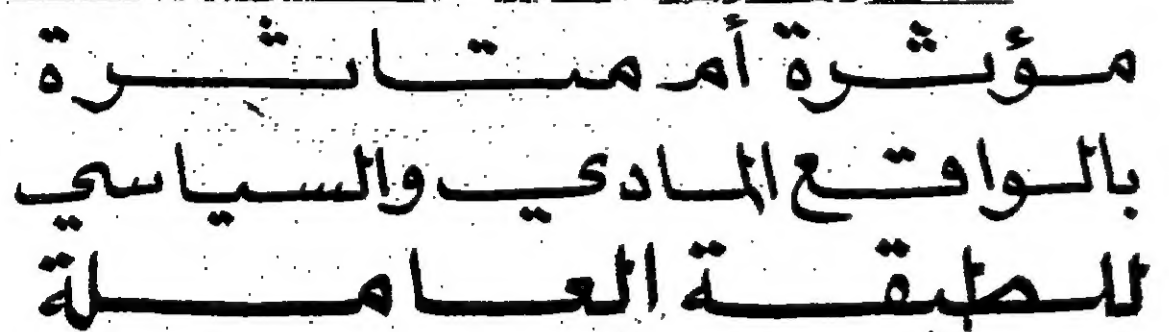 مؤثرة أم متاثرة
بالواقع المادي والسياسي
للطبقة العاملة